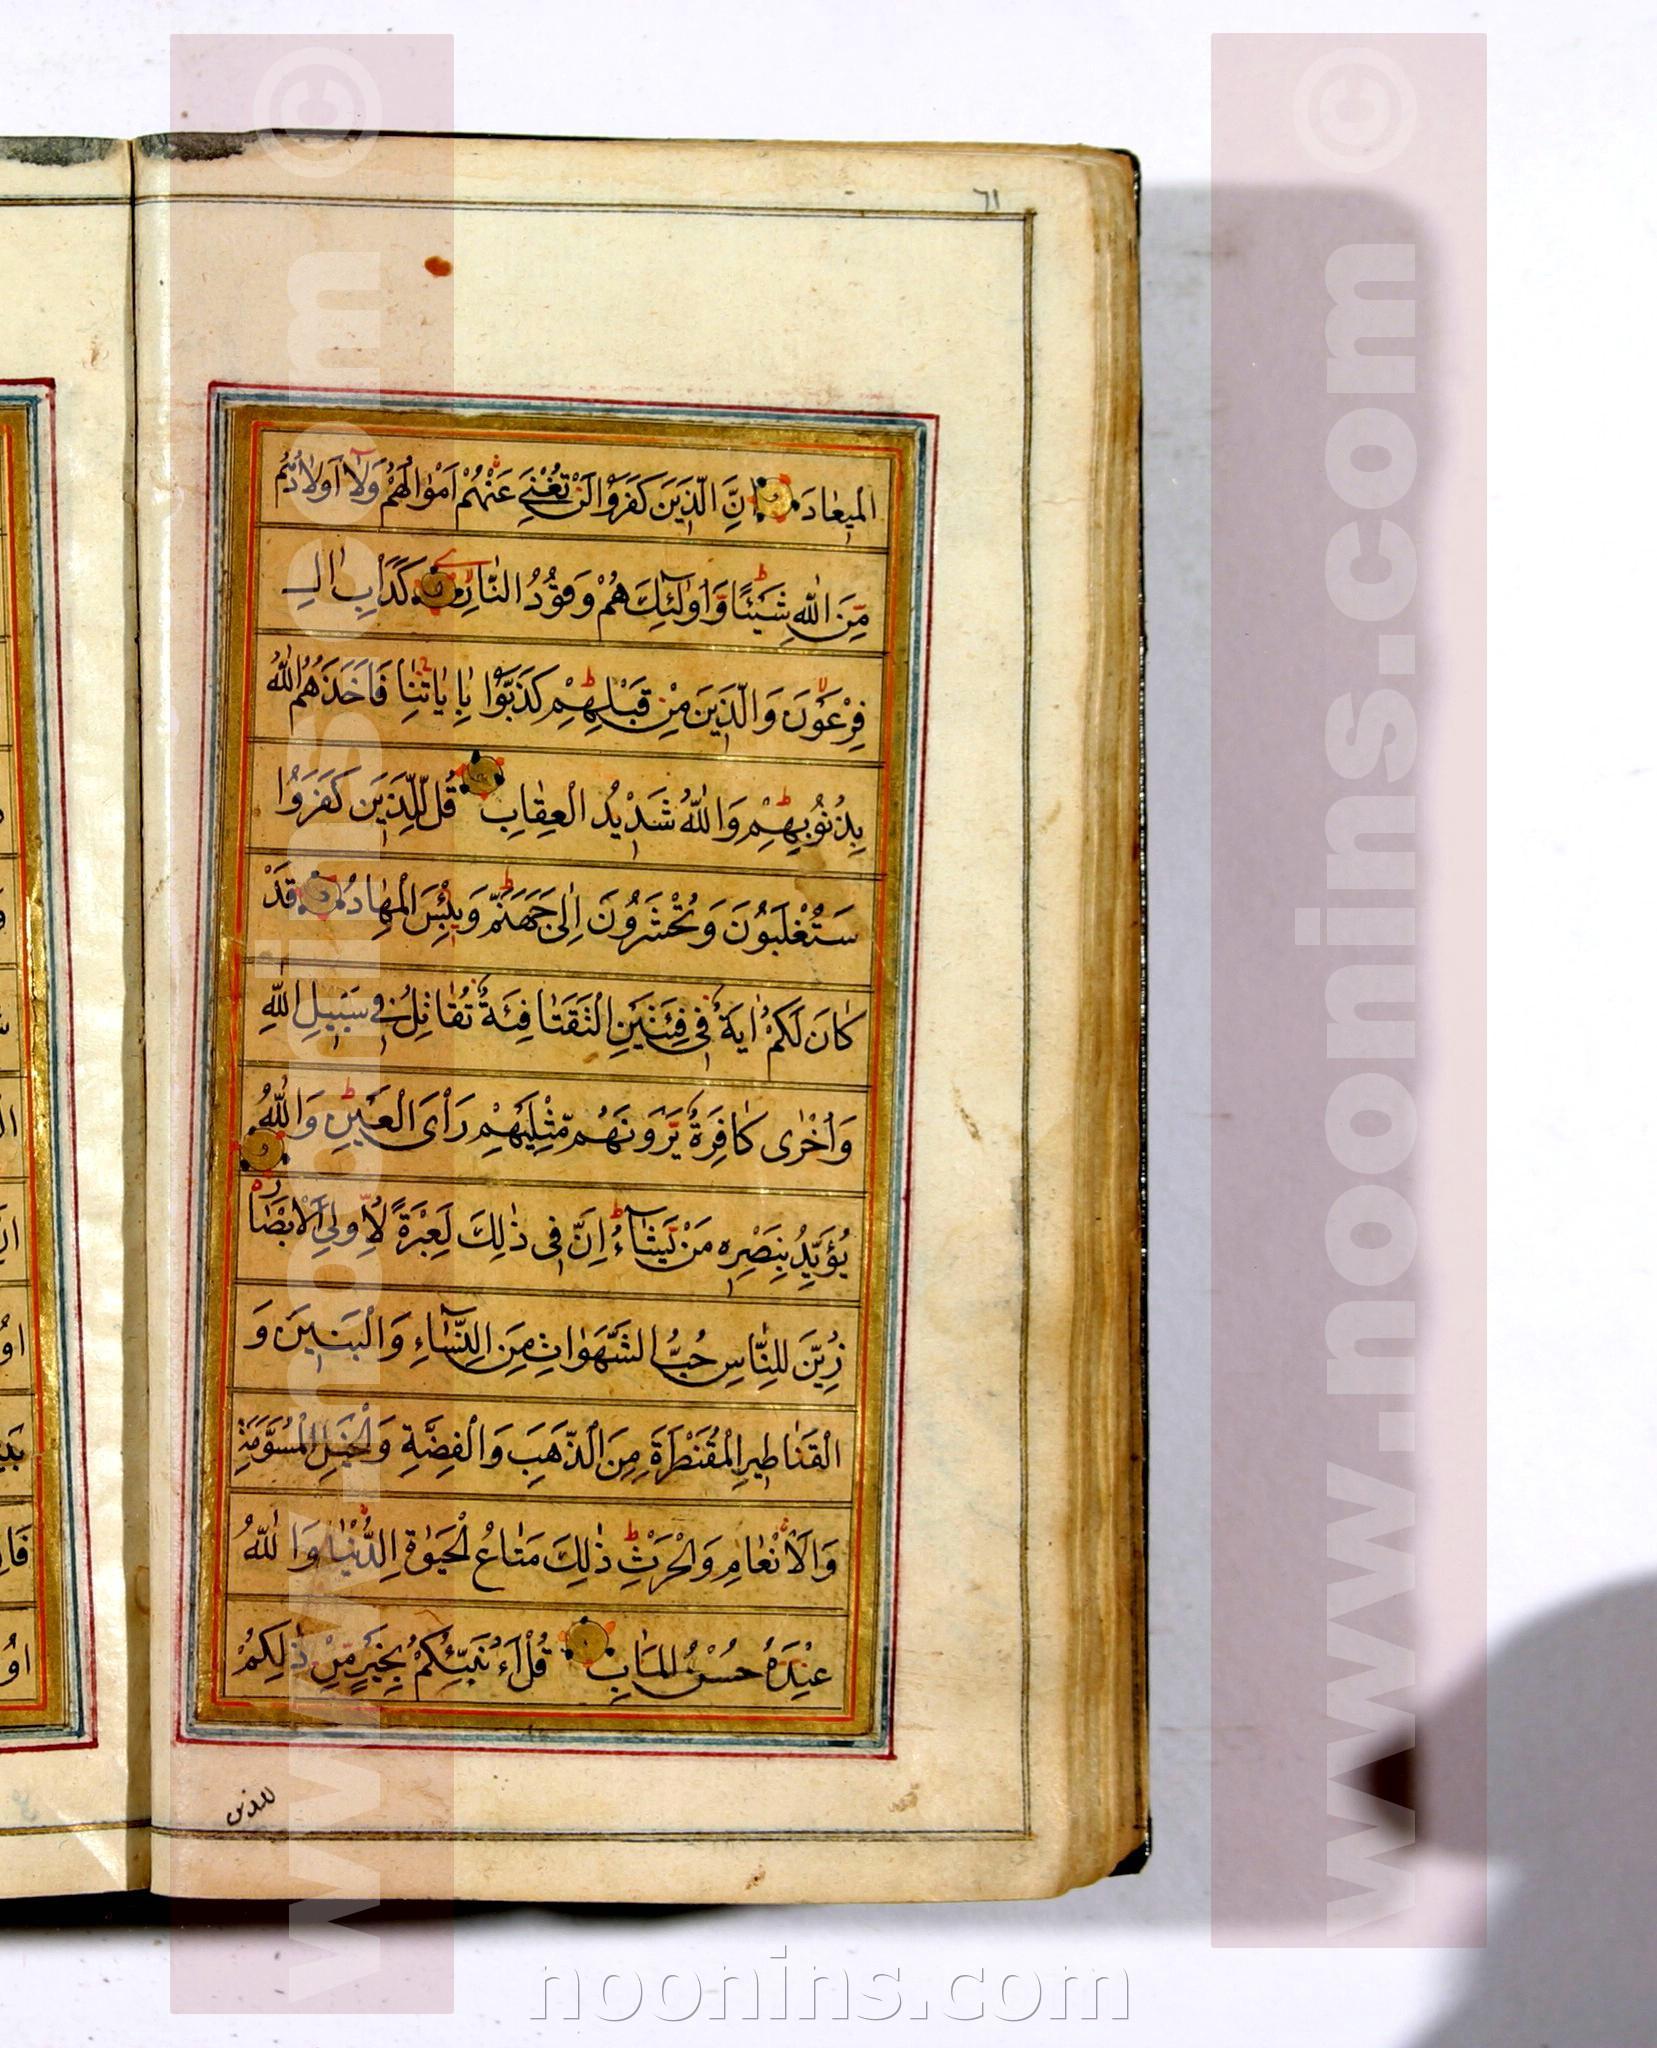 ٦١
الْمیعٰادَ اِنَّ الَّذینَ كَفَرَوُا لَنْ تُغْنِیَ عَنْهُمْ اَمْوٰالُهُمْ وَلٰٓا اَوْلاٰدُهُمْ
مِّنَ اللّٰهِ شَیْئًا وَّاُولٰٓئِكَ هُمْ وَقُوْدُ النّٰارِ كَدَاْبِ اٰلِ
فِرْعَوْنَ وَالَّذینَ مِنْ قَبْلِهِمْ كَذَّبَوُا بِاٰیٰاتِنٰا فَاَخَذَهُمُ اللّٰهُ
بِذُنُوُبِهِمْ وَاللّٰهُ شَدْیدُ الْعِقٰابِ قُل لِّلَّذینَ كَفَرَوُا
سَتُغْلَبَوُنَ وَتُحْشَرَوُنَ اِلٰی جَهَنَّمَ وَبِئْسَ الْمِهٰادُ قَدْ
كٰانَ لَكُمْ اٰیَةٌ فی فِئَتَیْنِ الْتَقَتٰا فِئَةٌ تُقٰاتِلُ فی سَبیلِ اللّٰهِ
وَاُخْرٰی كٰافِرَةٌ یَّرَوْنَهُمْ مِّثْلَیْهِمْ رَاْیَ الْعَیْنِ وَاللّٰهُ
یُؤَیِّدُ بِنَصْرِهٖ مَنْ یَّشٰٓاءُ اِنَّ فی ذٰلِكَ لَعِبْرَةً لِّاُولِی الْاَبْصٰارِ
زُیِّنَ لِلنّٰاسِ حُبُّ الشَّهَوٰاتِ مِنَ النِّسٰٓاءِ وَالْبَنینَ وَ
الْقَنٰاطیرِ الْمُقَنْطَرَةِ مِنَ الذَّهَبِ وَالْفِضَّةِ وَالْخَیْلِ الْمُسَوَّمَةِ
وَالْاَنْعٰامِ وَالْحَرْثِ ذٰلِكَ مَتٰاعُ الْحَیٰوةِ الدُّنْیٰا وَاللّٰهُ
عِنْدَهُ حُسْنُ الْمَاٰبِ قُلْ اَءُنَبِّئُكُمْ بِخَیْرٍ مِّنْ ذٰلِكُمْ
© www.noonins.com
© www.noonins.com
noonins.com